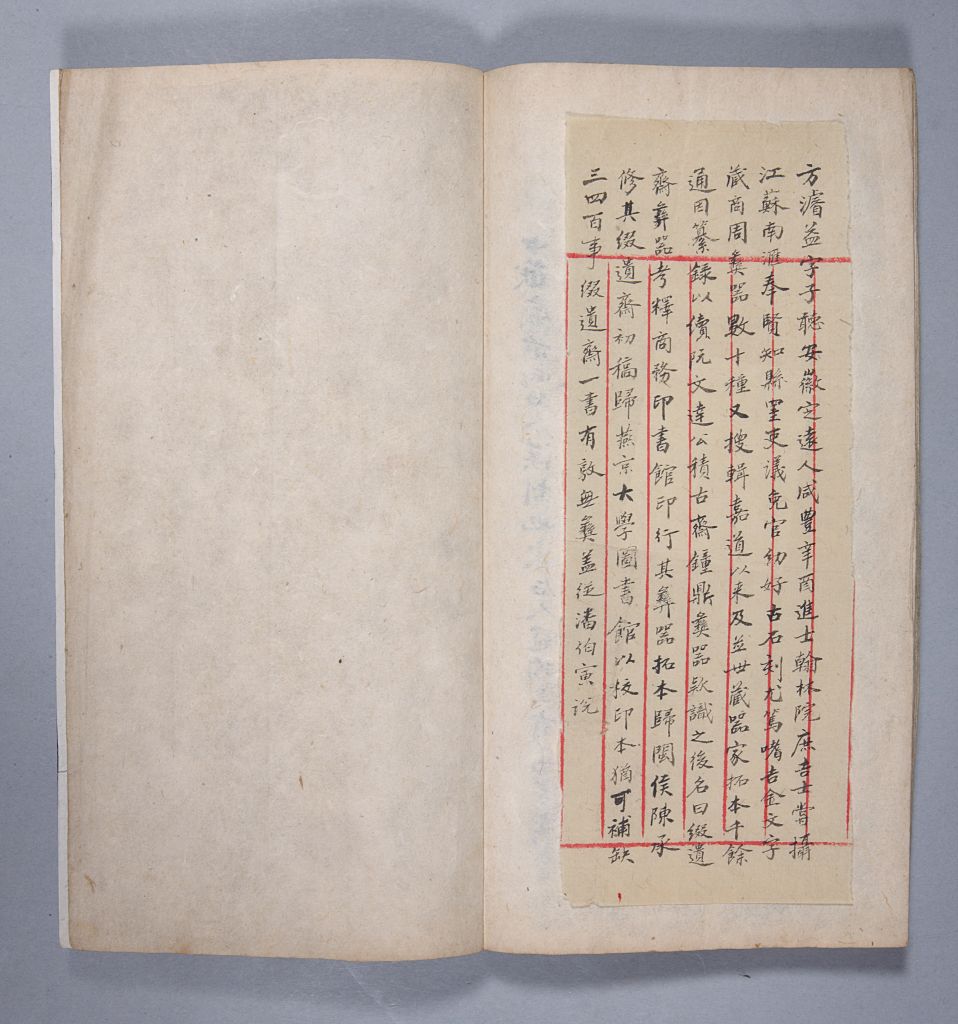 方濬益字子聽安徽定遠人咸豊辛酉進士翰林院庶吉士嘗攝
江蘇南滙奉賢知縣罣吏議免官幼好古石刻尤篤嗜吉金文字
蔵商周彝器數十種又搜輯嘉道以来及並世蔵器家拓本千餘
通因纂錄以續阮文達公積古齋鐘鼎彝器欵識之後名曰綴遺
齋彝器考釋商務印書館印行其彝器拓本歸閩侯陳承
修其綴遺齋初稿歸燕京大學圖書館以校印本猶可補缺
三四百事綴遺齋一書有敦無彝盖從潘伯寅說